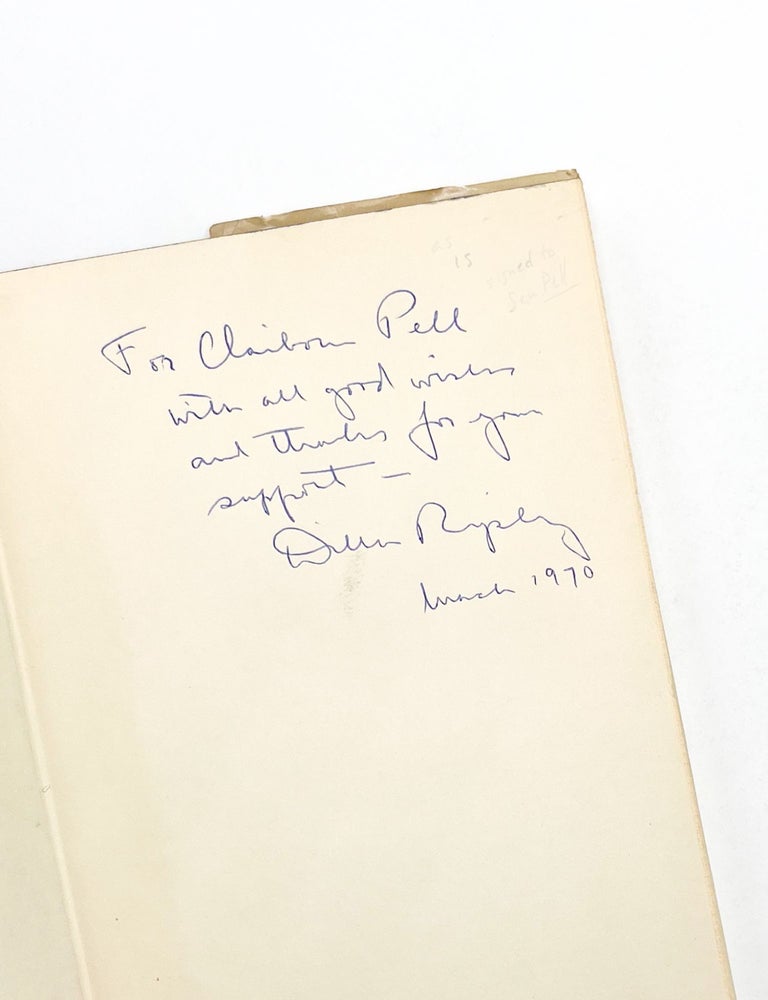 as
is
signed to
Sen Pell
For Claiborne Pell
with all good wishes
and thanks for your
support —
Dillon Ripley
March 1970